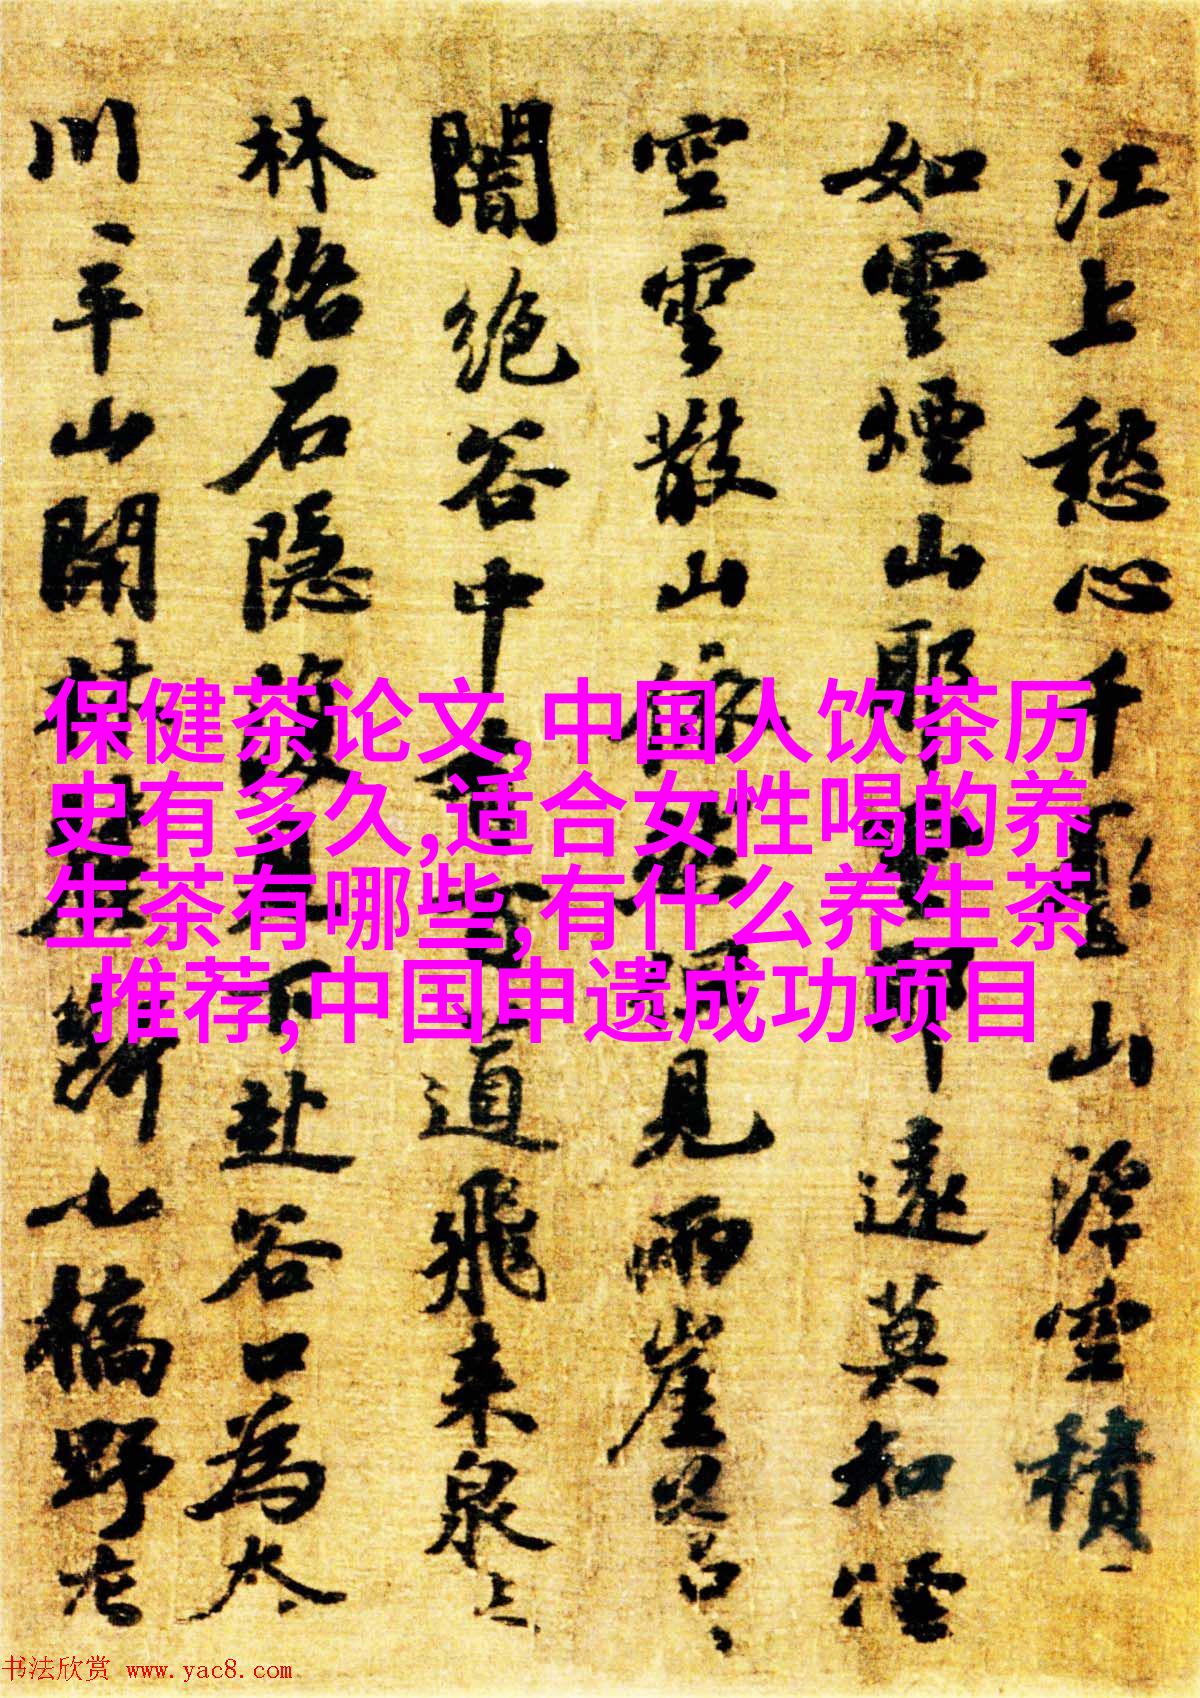 江上愁心千疊山浮空積
如雲煙山耶耶遠莫知煙
空雲散山依見兩崖蒼
闇絕谷中百道飛來泉
林絡石隱復見下赴谷口為
川平山開林麓斷小橋野店
保健茶论文,中国人饮茶历
史有多久,适合女性喝的养
生茶有哪些,有什么养生茶
推荐,中国申遗成功项目
书法欣赏 www.yac8.com